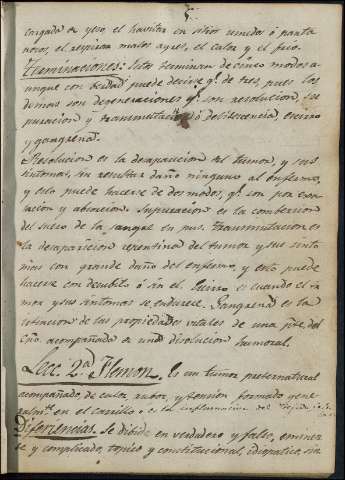 5.
cargada de yeso, el havitar en sitios umedos ó panta
nosos, el respirar malos ayres, el calor y el frio.
Terminaciones: Estos terminan de cinco modos a
unque con verdad puede decirse q.e de tres, pues los
demas son degeneraciones q.e son resolucion, su
puracion y transmutacion ó delitescencia, escirro
y gangrena.
Resolucion es la desaparicion del tumor, y sus
sintomas, sin resultar daño ninguno al enfermo,
y esto puede hacerse de dos modos, q.e son por exa
lacion y absorcion. Supuracion es la combercion
del suero de la sangre en pus. transmutacion es
la desaparicion repentina del tumor y sus sinto
mas con grande daño del enfermo, y esto puede
hacerse con decubito ó sin el. Escirro es cuando el tu
mor y sus sintomas se endurece. Gangrena es la
estincion de las propiedades vitales de una p.te del
c.po acompañada de una disolucion humoral.
Lecc. 2.a Flemon. Es un tumor preternatural
acompañado, de calor, rubor, y tension formado gene
ralm.te en el carrillo o es la inflamacion del tegido
Diferiencias. Se dibide en verdadero y falso, eminen
te y complicado, topico y constitucional, idiopatico, sin